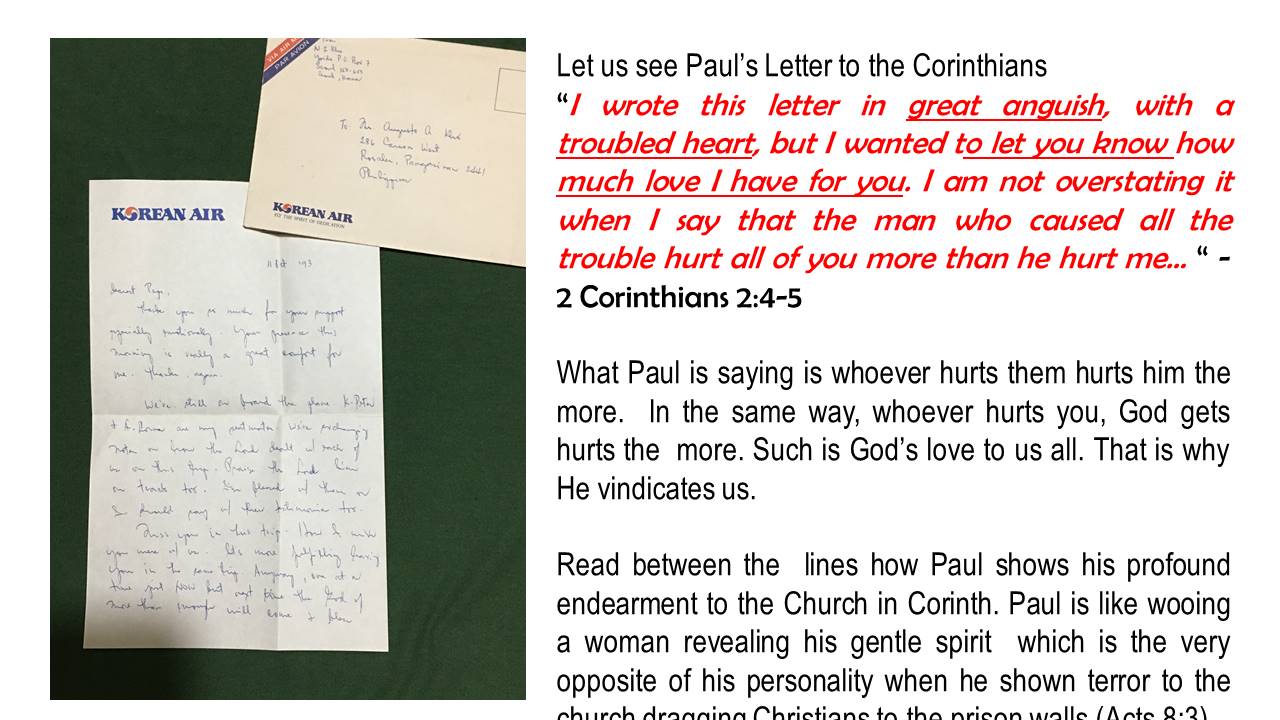 VIA AIR
PAR AVION
Seoul
Korea
To: Mr. Augusto A
286 Canson West
Rosales, Pangasinan 2441
Philippines
KOREAN AIR
FLY THE SPIRIT OF DEDICATION
KOREAN AIR
'93
Dearest Papa,
Thank you so much for your support
specially emotionally. Your presence this
morning is really a great comfort for
me. Thanks again.
We're still on board the plane. K. Peter
are my seatmates. We're exchanging
notes on how the Lord dealt w/ each of
us on this trip. Praise the Lord
on track too. I'm pleased w/ them
I should say w/ their testimonies too.
Miss you in this trip. How I wish
you were w/ us. It's more fulfilling having
you in the same trip. Anyway, one at a
time just now but next time the God of
more than enough will come &
Let us see Paul’s Letter to the Corinthians
“I wrote this letter in great anguish, with a
troubled heart, but I wanted to let you know how
much love I have for you. I am not overstating it
when I say that the man who caused all the
trouble hurt all of you more than he hurt me... “ -
2 Corinthians 2:4-5
What Paul is saying is whoever hurts them hurts him the
more. In the same way, whoever hurts you, God gets
hurts the more. Such is God’s love to us all. That is why
He vindicates us.
Read between the lines how Paul shows his profound
endearment to the Church in Corinth. Paul is like wooing
a woman revealing his gentle spirit which is the very
opposite of his personality when he shown terror to the
church dragging Christians to the prison walls (Acts 8:3)